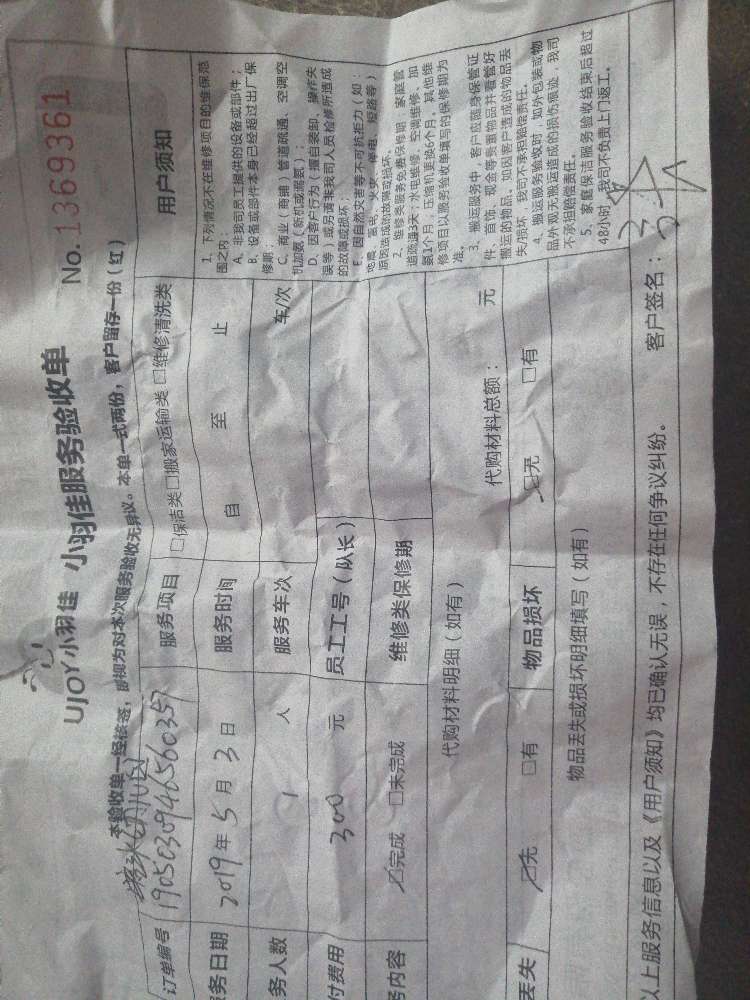 UJOY小羽佳 小羽佳服务验收单
No. 1369361
本验收单一经签签，即视为对本次服务验收无异议。本单一式两份，客户留存一份（红）
订单编号 190503094656035
服务项目 □保洁类□搬家运输类 □维修清洗类
务日期 2019年5月3日
服务时间 自 至 止
务人数 1 人
服务车次 车/次
付费用 300 元
员工工号（队长）
务内容 ☑完成 □未完成
维修类保修期
代购材料明细（如有） 代购材料总额： 元
丢失 ☑无 □有
物品损坏 ☑无 □有
物品丢失或损坏明细填写（如有）
用户须知
1、下列情况不在维修项目的维保范
围之内：
A、非我司员工提供的设备或部件；
B、设备或部件本身已经超过出厂保
修期；
C、商业（商铺）管道疏通、空调空
机加氨（新机或漏氨）；
D、因客户行为（擅自装卸、操作失
误等）或另请非我司人员检修所造成
的故障或损坏；
E、因自然灾害等不可抗拒力（如：
地震、雷号、火灾、停电、短路等）
原因造成的故障或损坏。
2、维修类服务免费保修期：家庭管
道疏通3天；水电维修、空调维修、加
氨1个月，压缩机更换6个月，其他维
修项目以服务验收单填写的保修期为
准。
3、搬运服务中，客户应随身保管证
件、首饰、现金等贵重物品并看管好
搬运的物品，如因客户造成的物品丢
失/损坏，我司不承担赔偿责任。
4、搬运服务验收时，如外包装或物
品外观无搬运造成的损伤痕迹，我司
不承担赔偿责任。
5、家庭保洁服务验收结束后超过
48小时，我司不负责上门返工。
以上服务信息以及《用户须知》均已确认无误，不存在任何争议纠纷。
客户签名：